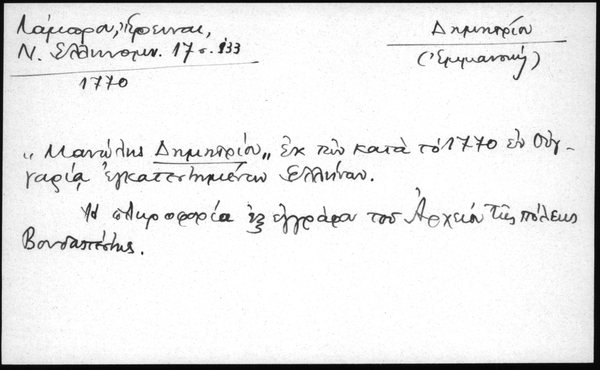 Λάμπρου, Ἔρευναι,
Ν. Ἑλληνομν. 17 σ. 133
1770
Δημητρίου
"Μανώλης Δημητρίου" ἐκ τῶν κατὰ τὸ 1770 ἐν Οὑγ-
γαρίᾳ ἐγκατεστημένων Ἑλλήνων.
Ἡ πληροφορία ἐξ ἐγγράφου τοῦ Ἀρχείου τῆς πόλεως
Βουδαπέστης.